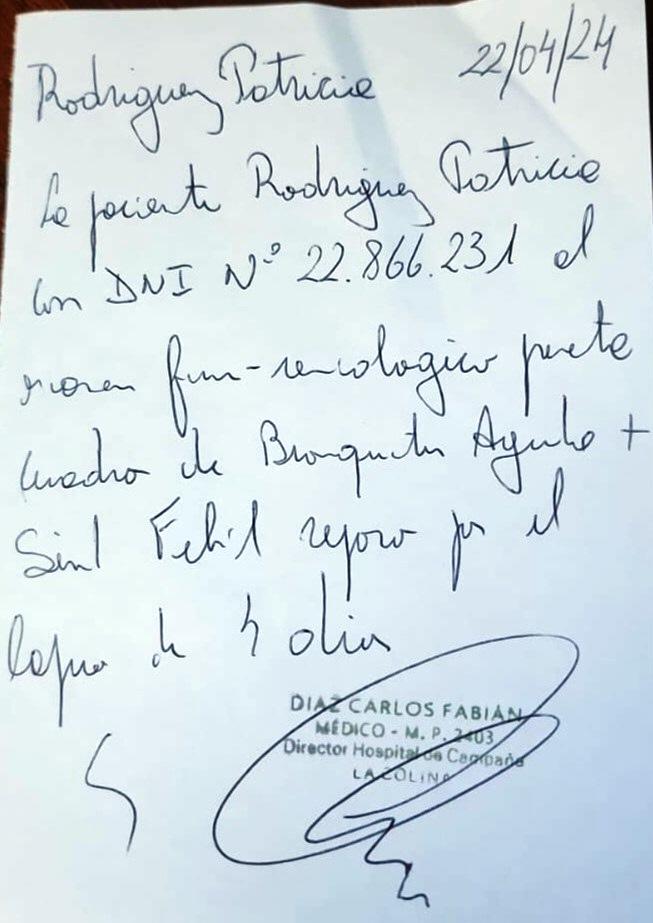 Rodriguez Patricia 22/04/24
La paciente Rodriguez Patricia
con DNI Nº 22.866.231 al
examen
presenta
cuadro de Bronquitis Aguda +
Sind Febril reposo por el
lapso de días
DIAZ CARLOS FABIÁN
MÉDICO - M. P. 2403
Director Hospital de Campaña
LA COLINA